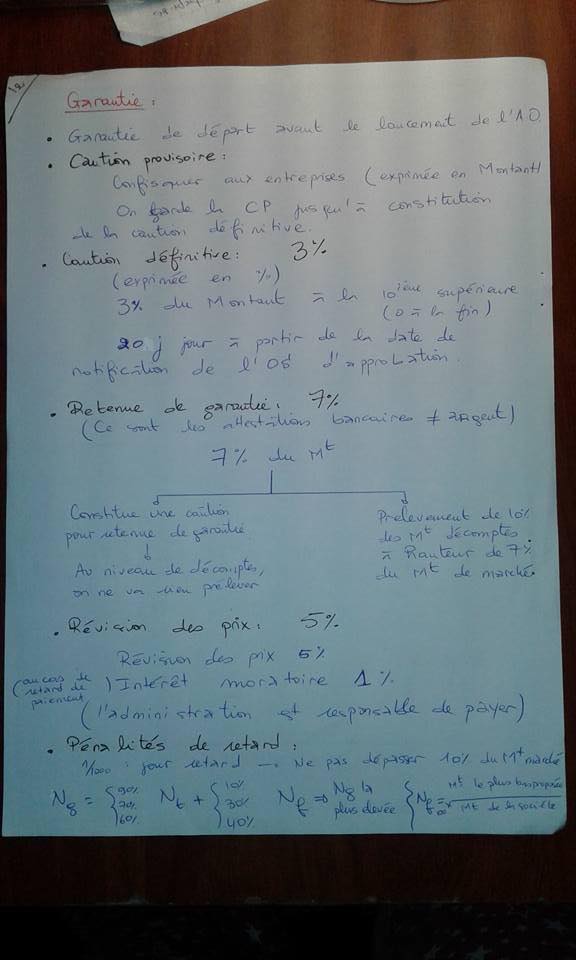 Garantie :
• Garantie de départ avant le lancement de l'A.O.
• Caution provisoire :
Confisquer aux entreprises (exprimée en Montant)
On garde la CP jusqu'à constitution
de la caution définitive.
• Caution définitive : 3%
(exprimée en %)
3% du Montant à la 10ième supérieure
(0 à la fin)
20 j jour à partir de la date de
notification de l'OS d'approbation.
• Retenue de garantie : 7%
(Ce sont les attestations bancaires ≠ argent)
7% du Mt
Constitue une caution
pour retenue de garantie
↓
Au niveau de décomptes,
on ne va rien prélever
Prelevement de 10%
des Mt décomptes
à hauteur de 7%
du Mt de marché.
• Révision des prix : 5%
Révision des prix 5%
(au cas de retard de paiement) Intérêt moratoire 1%
(l'administration est responsable de payer)
• Pénalités de retard :
1/1000 : jour retard → Ne pas dépasser 10% du Mt marché
Ng = { 90% 70% 60% Nt + { 10% 30% 40% Nf ⇒ Ng la plus élevée { Nf = Mt le plus bas proposée / Mt de la société